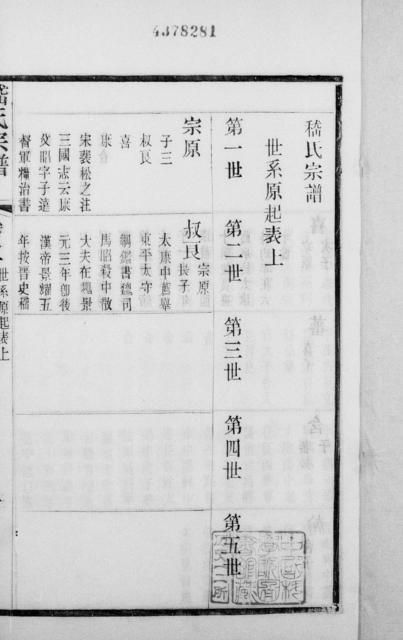 4378281
嵇氏宗譜
世系原起表上
第一世 第二世 第三世 第四世 第五世
宗原
子三
叔良
喜
康
宋裴松之注
三國志云康
父昭字子遠
督軍糧治書
叔良 宗原長子
太康中舊舉
東平太守
綱鑑書魏司
馬昭殺中散
大夫在魏景
元三年卽後
漢帝景耀五
年按晉史嵇
嵇氏宗譜
世系原起表上